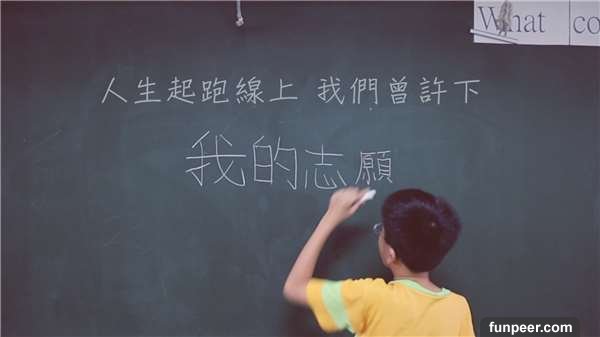 What co
人生起跑線上 我們曾許下
我的志願
funpeer.com